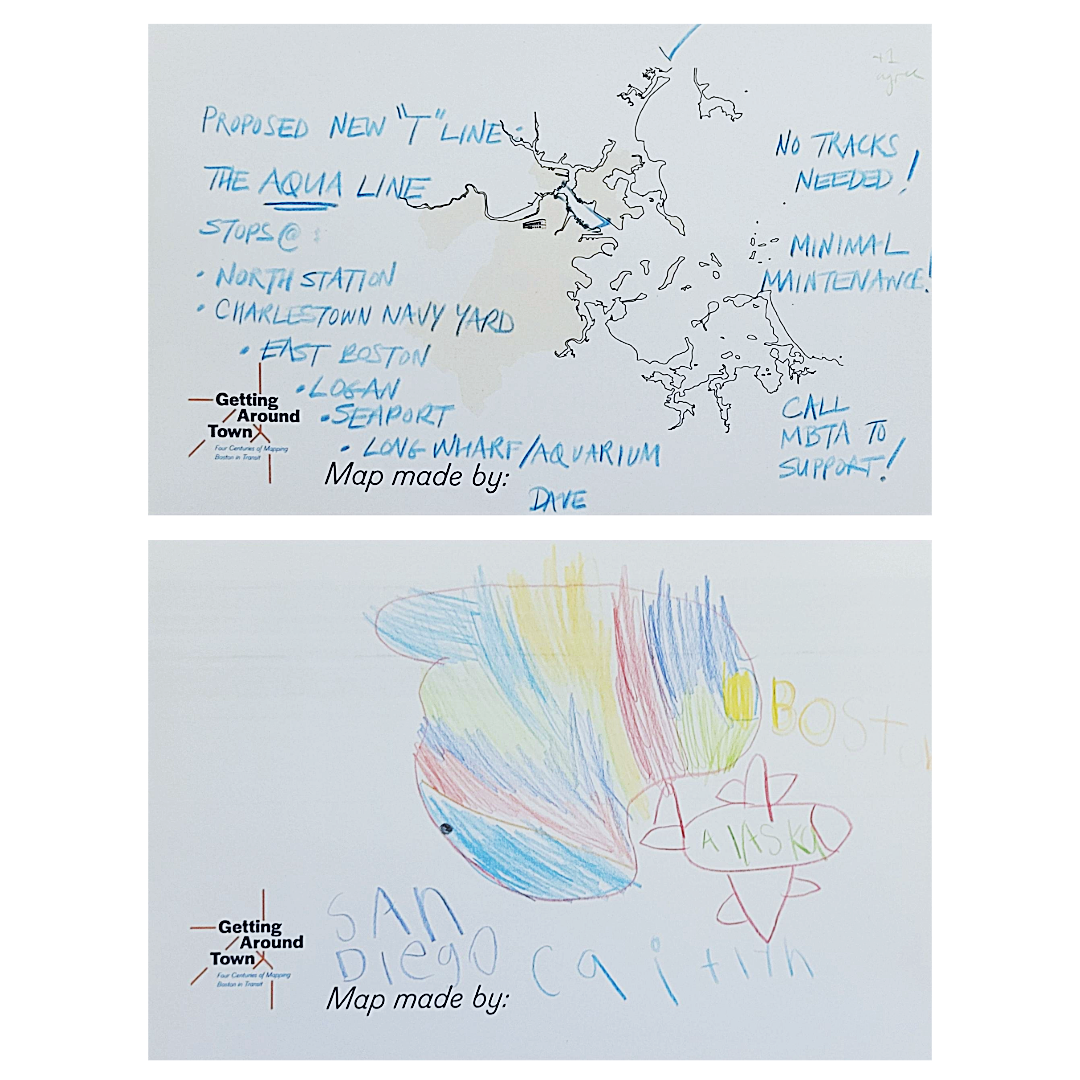 +1
agree
PROPOSED NEW "T" LINE:
THE AQUA LINE
STOPS@:
• NORTH STATION
• CHARLESTOWN NAVY YARD
• EAST BOSTON
• LOGAN
• SEAPORT
• LONG WHARF/AQUARIUM
NO TRACKS
NEEDED!
MINIMAL
MAINTENANCE!
CALL
MBTA TO
SUPPORT!
Getting
Around
Town
Four Centuries of Mapping
Boston in Transit
Map made by:
DAVE
BOSton
AlASKa
SAN
DIegO
Getting
Around
Town
Four Centuries of Mapping
Boston in Transit
Map made by: